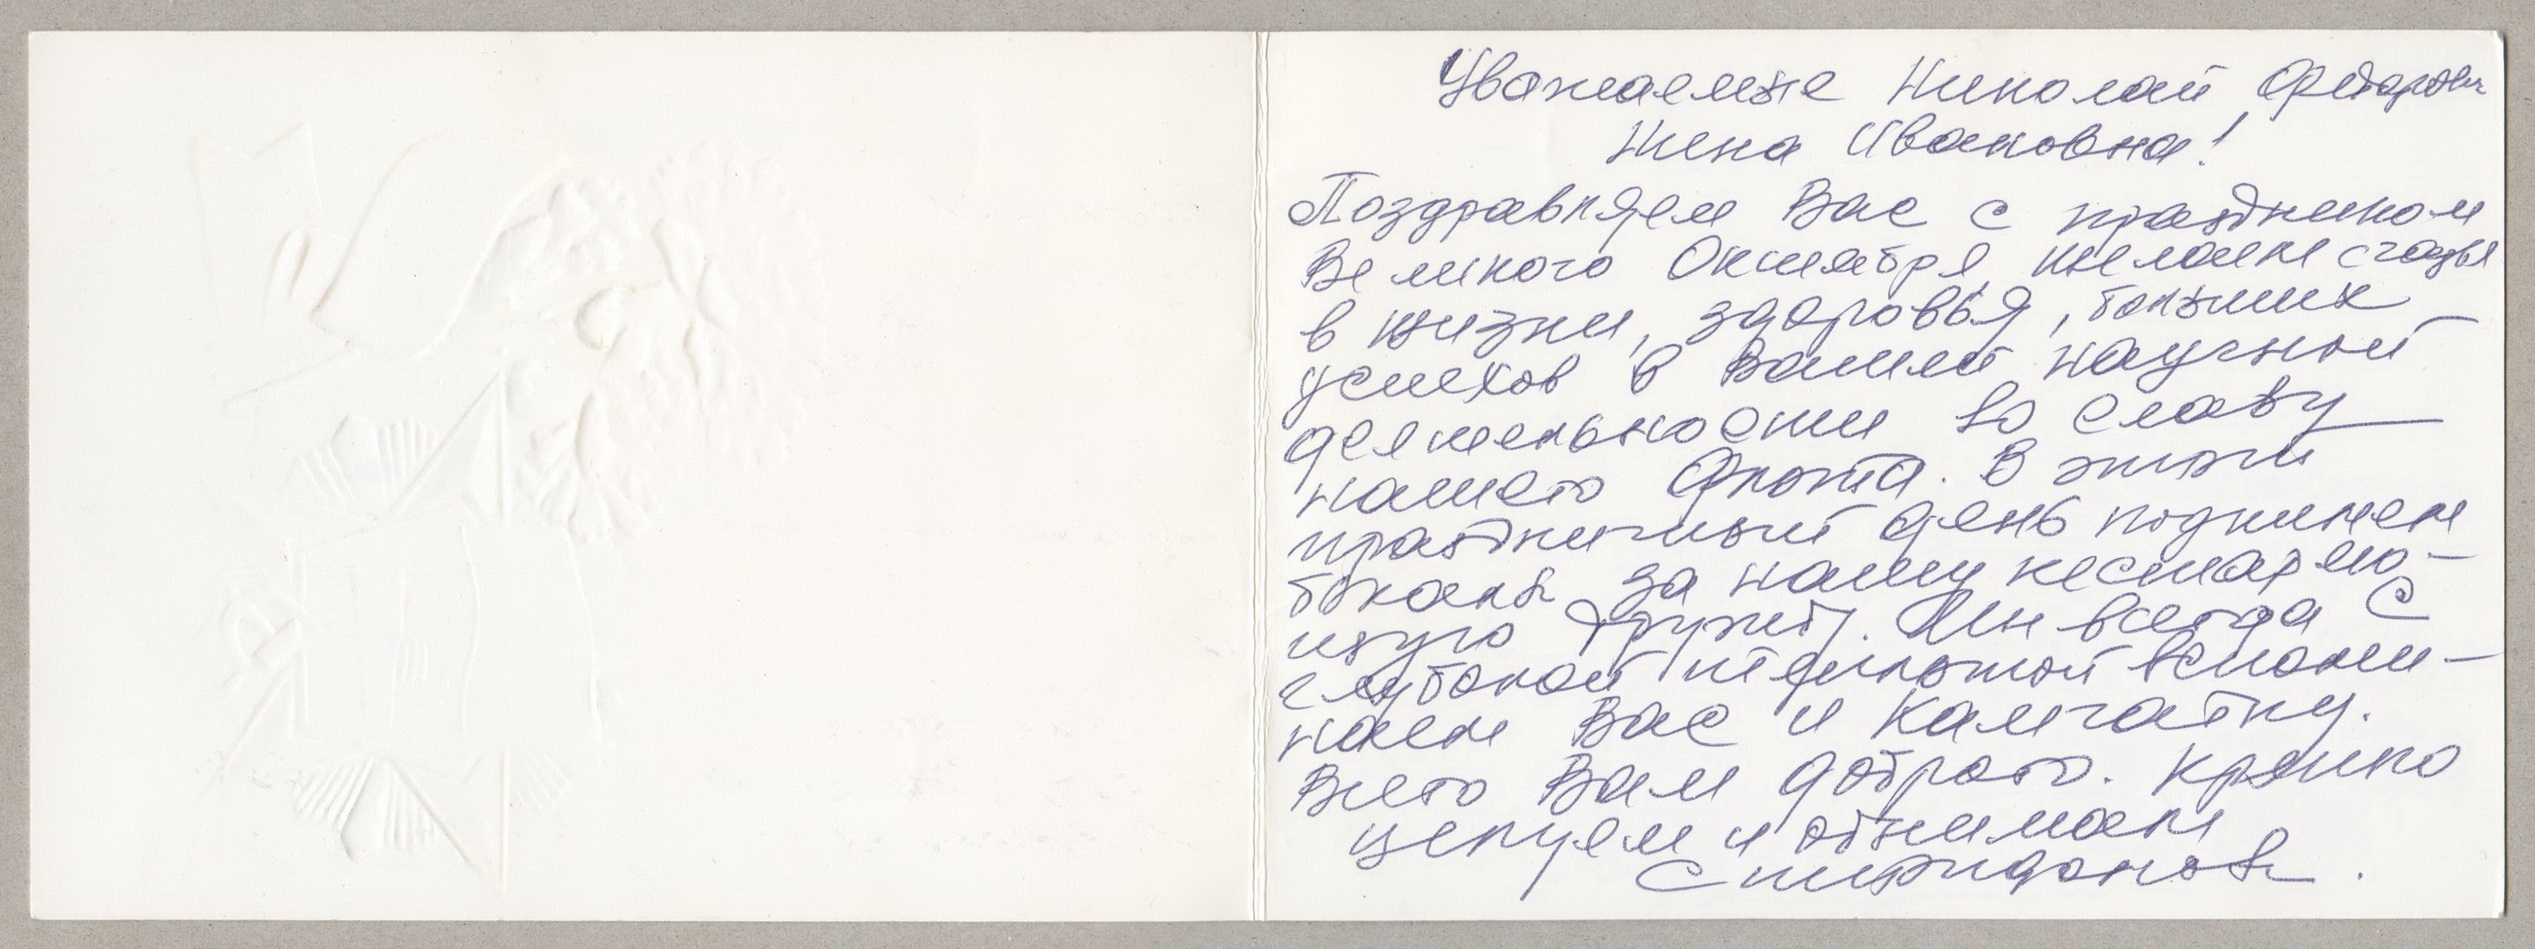 Уважаемые Николай Федорович
Жена Ивановна!
Поздравляем Вас с праздником
Великого Октября, желаем счастья
в жизни, здоровья, больших
успехов в Вашей научной
деятельности во славу
нашего Флота. В этот
праздничный день поднимем
бокалы за нашу нестарею-
щую дружбу. Мы всегда с
глубокой теплотой вспоми-
наем Вас и Камчатку.
Всего Вам доброго. Крепко
целуем и обнимаем
Спиридоновы.